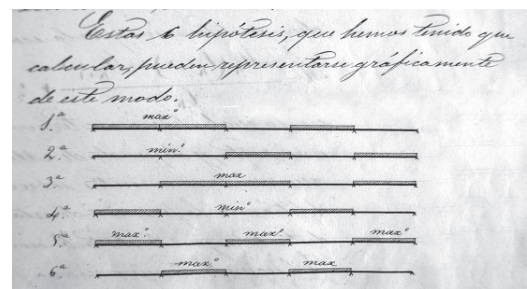 Estas 6 hipótesis, que hemos tenido que
calcular, pueden representarse gráficamente
de este modo.
1.ª max.º
2.ª min.º
3.ª max
4.ª min.º
5.ª max.º max.º max.º
6.ª max.º max